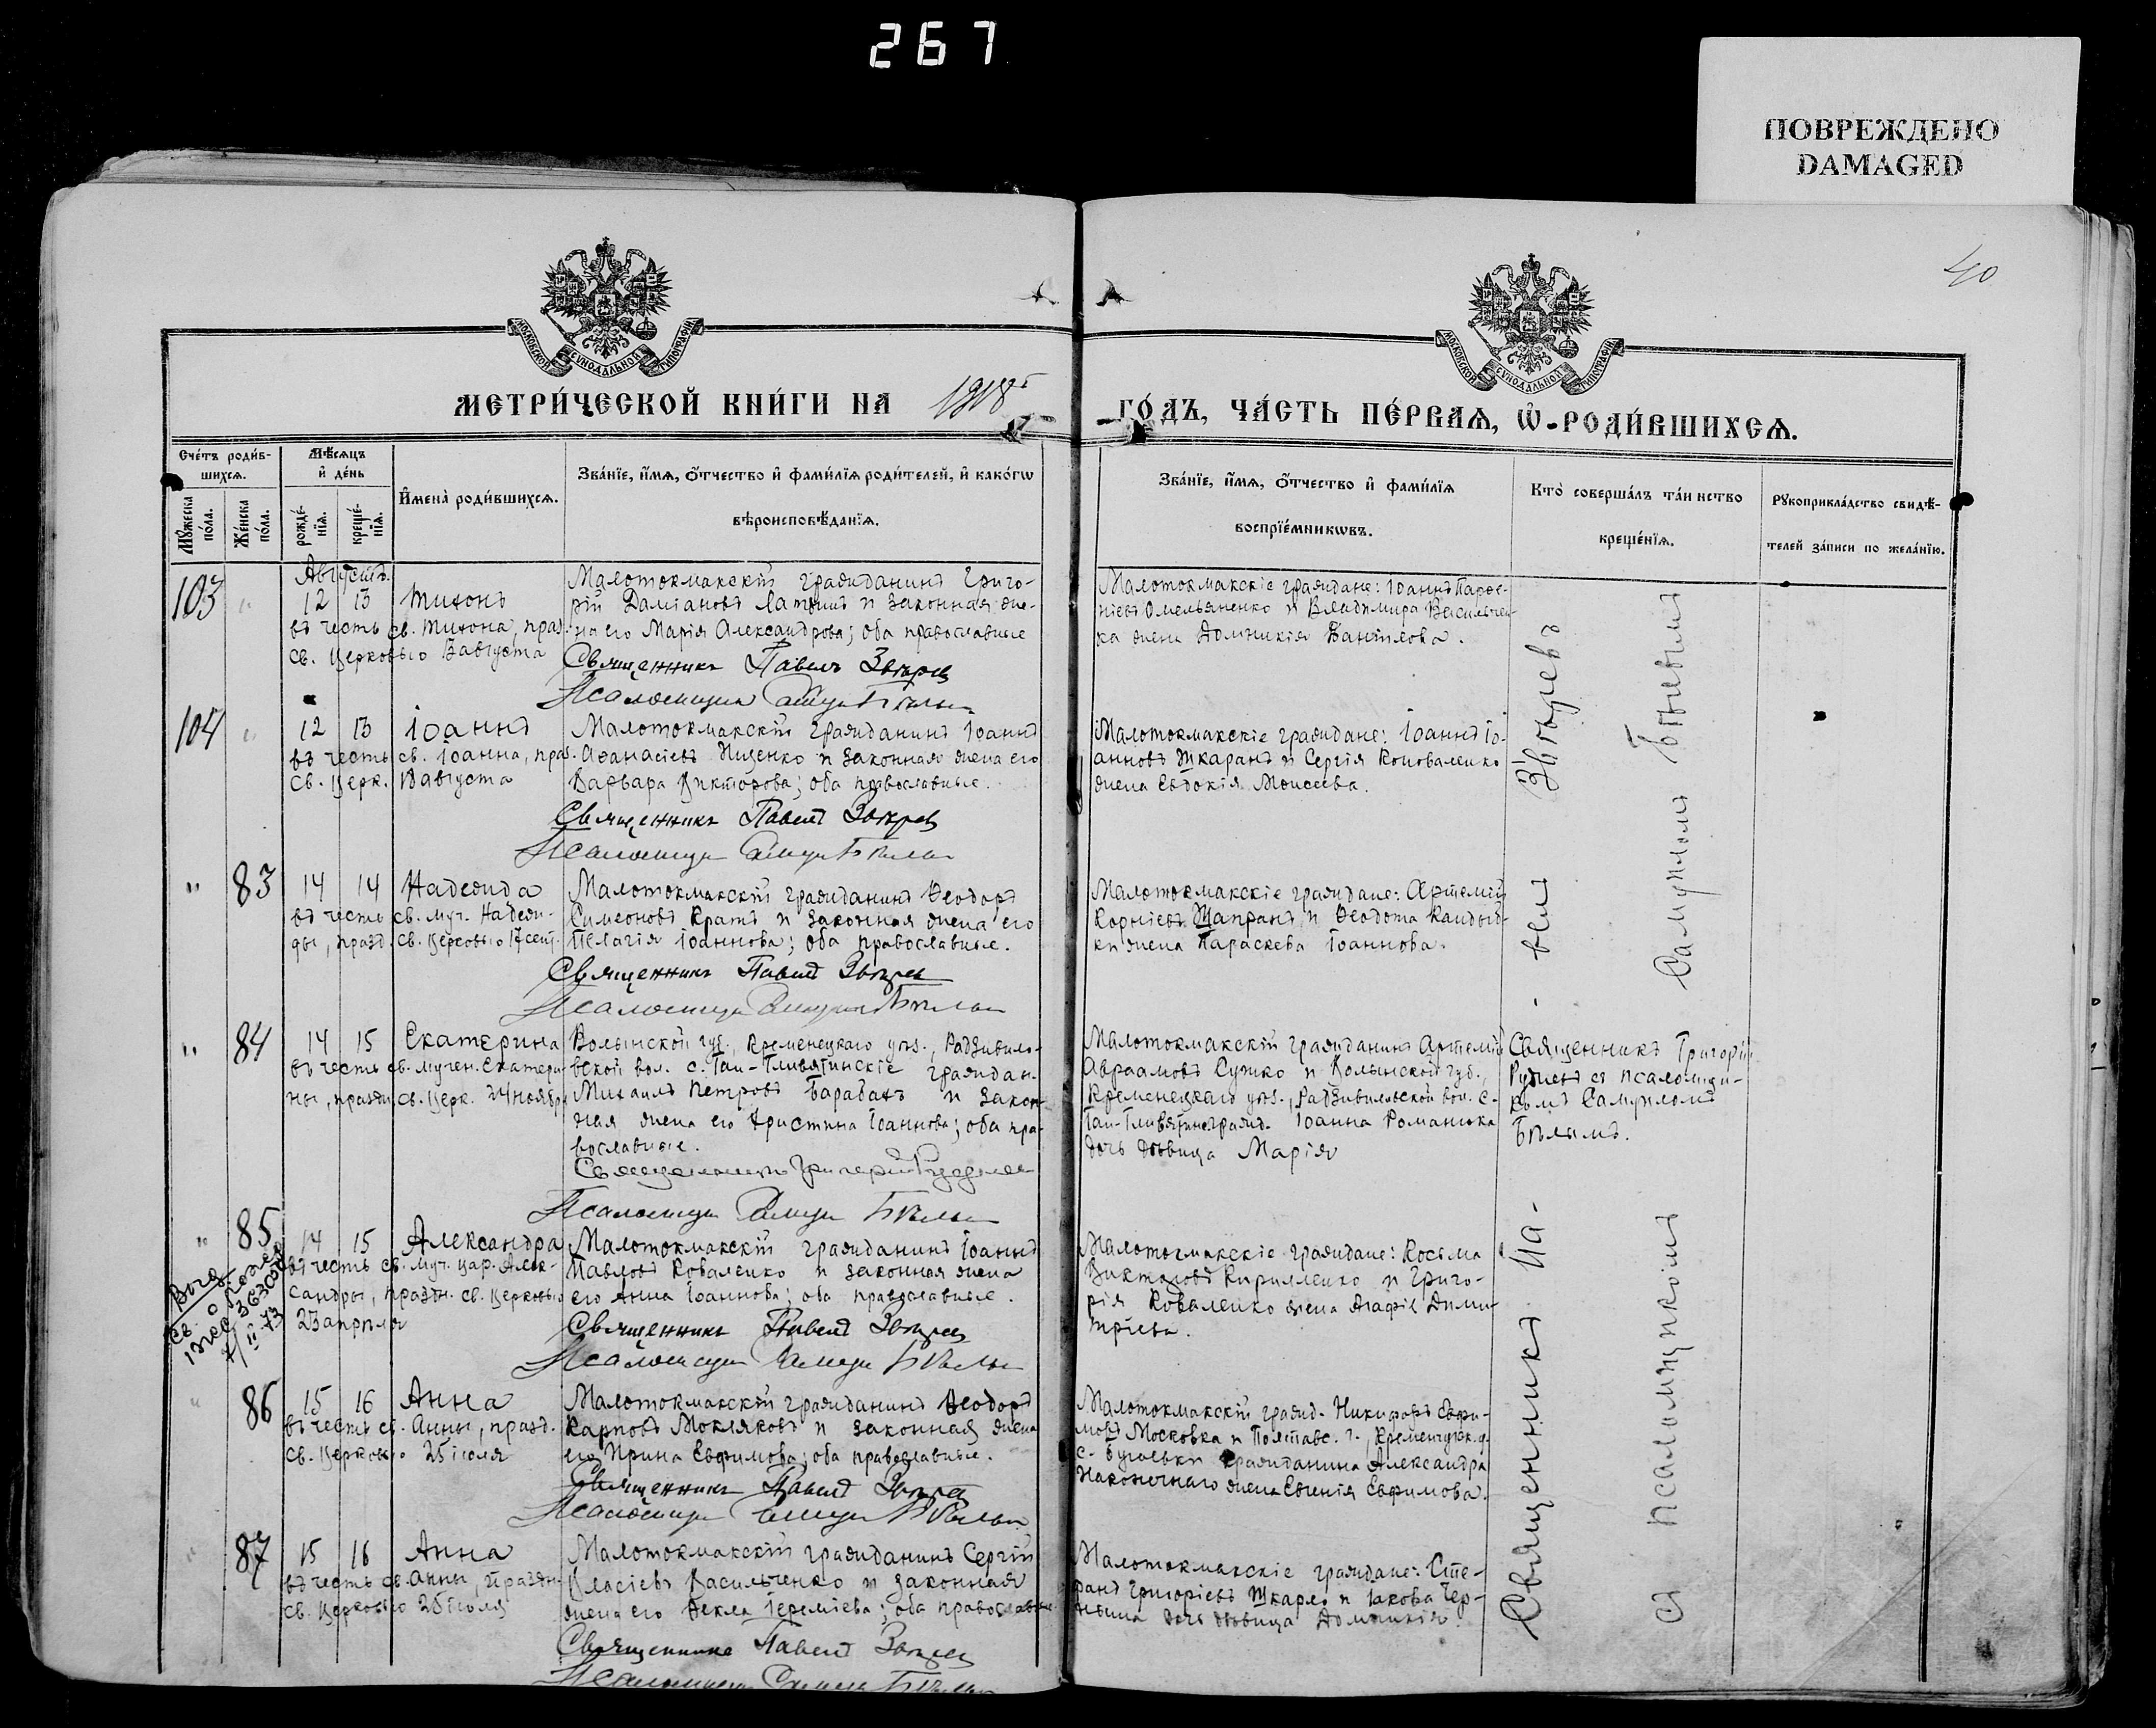 267
ПОВРЕЖДЕНО
DAMAGED
40
МОСКОВСКОЙ СѴНОДАЛЬНОЙ ТИПОГРАФІИ
МОСКОВСКОЙ СѴНОДАЛЬНОЙ ТИПОГРАФІИ
МЕТРИ́ЧЕСКОЙ КНИ́ГИ НА 1918
ГО́ДЪ, ЧА́СТЬ ПЕ́РВАѦ, Ѡ РОДИ́ВШИХСѦ.
Сче́тъ роди́вшихсѧ.
Мꙋ́жеска по́ла.
Же́нска по́ла.
Мѣ́сѧцъ и҆ де́нь
рожде́нїѧ.
креще́нїѧ.
И҆мена̀ роди́вшихсѧ.
Зва́нїе, и҆́мѧ, ѻ҆́тчество и҆ фами́лїѧ роди́телей, и҆ како́гѡ
вѣроисповѣ́данїѧ.
Зва́нїе, и҆́мѧ, ѻ҆́тчество и҆ фами́лїѧ
воспрїе́мникѡвъ.
Кто̀ соверша́лъ та́инство
креще́нїѧ.
Рꙋкоприкла́дство свидѣ́-
телей за́писи по жела́нїю.
Августъ.
103 " 12 13 Тихонъ
въ честь св. Тихона, праз.
св. Церковью 13 августа
Малотокмакскій гражданинъ Григо-
рій Даміановъ и законная же-
на его Марія Александрова; оба православные
Священникъ Павелъ Звѣревъ
Псаломщикъ Самуилъ Бѣлый
Малотокмакскіе граждане: Іоаннъ Парѳе-
ніевъ Омельяненко и Владиміра Васильчен-
ка жена Домникія Даніилова.
104 " 12 13 Іоаннъ
въ честь св. Іоанна, праз.
св. Церк. августа
Малотокмакскій гражданинъ Іоаннъ
Аѳанасіевъ Ищенко и законная жена его
Варвара Викторова; оба православные.
Священникъ Павелъ Звѣревъ
Псаломщикъ Самуилъ Бѣлый
Малотокмакскіе граждане: Іоаннъ Іо-
анновъ Шкаранъ и Сергія Коноваленко
жена Евдокія Моисеева.
" 83 14 14 Надежда
въ честь св. муч. Надеж-
ды, празд. св. Церковью 17 сент.
Малотокмакскій гражданинъ Ѳеодоръ
Симеоновъ Кратъ и законная жена его
Пелагія Іоаннова; оба православные.
Священникъ Павелъ Звѣревъ
Псаломщикъ Самуилъ Бѣлый
Малотокмакскіе граждане: Артемій
Корніевъ Шапранъ и Ѳеодота Кандыб-
ки жена Параскева Іоаннова.
" 84 14 15 Екатерина
въ честь св. мучен. Екатери-
ны, праздн. св. Церк. 24 ноября
Волынской губ., Кременецкаго уѣз., Радзивило-
вской вол. с. Гаи-Гливятинскіе граждан.
Михаилъ Петровъ Барабахъ и закон-
ная жена его Христина Іоаннова; оба пра-
вославные.
Священникъ Григорій
Псаломщикъ Самуилъ Бѣлый
Малотокмакскій гражданинъ Артемій
Авраамовъ Сушко и Волынской губ.,
Кременецкаго уѣз., Радзивильской вол. с.
Іоанна Романюка
дочь дѣвица Марія
Священникъ Григорій
съ псаломщи-
комъ Самуиломъ
Бѣлымъ.
" 85 14 15 Александра
въ честь св. муч. цар. Алек-
сандры, праздн. св. Церковью
23 апрѣля
Малотокмакскій гражданинъ Іоаннъ
Павловъ Коваленко и законная жена
его Анна Іоаннова; оба православные.
Священникъ Павелъ Звѣревъ
Псаломщикъ Самуилъ Бѣлый
Малотокмакскіе граждане: Косьма
Викторовъ Кирилленко и Григо-
рія Коваленко жена Агафія Дими-
тріева.
" 86 15 16 Анна
въ честь св. Анны, празд.
св. Церковью 25 іюля
Малотокмакскій гражданинъ Ѳеодоръ
Карповъ Мокляковъ и законная жена
его Ирина Евфимова; оба православные.
Священникъ Павелъ Звѣревъ
Псаломщикъ Самуилъ Бѣлый
Малотокмакскій гражд. Никифоръ Евфи-
мовъ Московка и Полтавс. г., Кременчугск. у.
гражданина Александра
Наконечнаго жена Евгенія Евфимова.
" 87 15 16 Анна
въ честь св. Анны, праздн.
св. Церковью 25 іюля
Малотокмакскій гражданинъ Сергій
Власіевъ Васильченко и законная
жена его Ѳекла Іереміева; оба православные
Священникъ Павелъ Звѣревъ
Псаломщикъ Самуилъ Бѣлый
Малотокмакскіе граждане: Сте-
фанъ Григоріевъ Шкарло и Іакова Чер-
дочь дѣвица Домникія.
Священникъ Па-
велъ Звѣревъ
съ псаломщикомъ
Самуиломъ Бѣлымъ